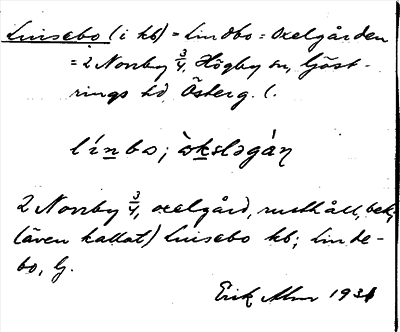 Luisebo (i kb) = Lindbo = Oxelgården
= 2 Norrby 3/4, Högby sn, Göst-
rings hd Österg. l.
línbo; ɔ̀kslǝgán
2 Norrby 3/4, oxelgård, rusthåll, bek,
(även kallat) Luisebo kb; Linde-
bo, G.
Erik Abm 1931